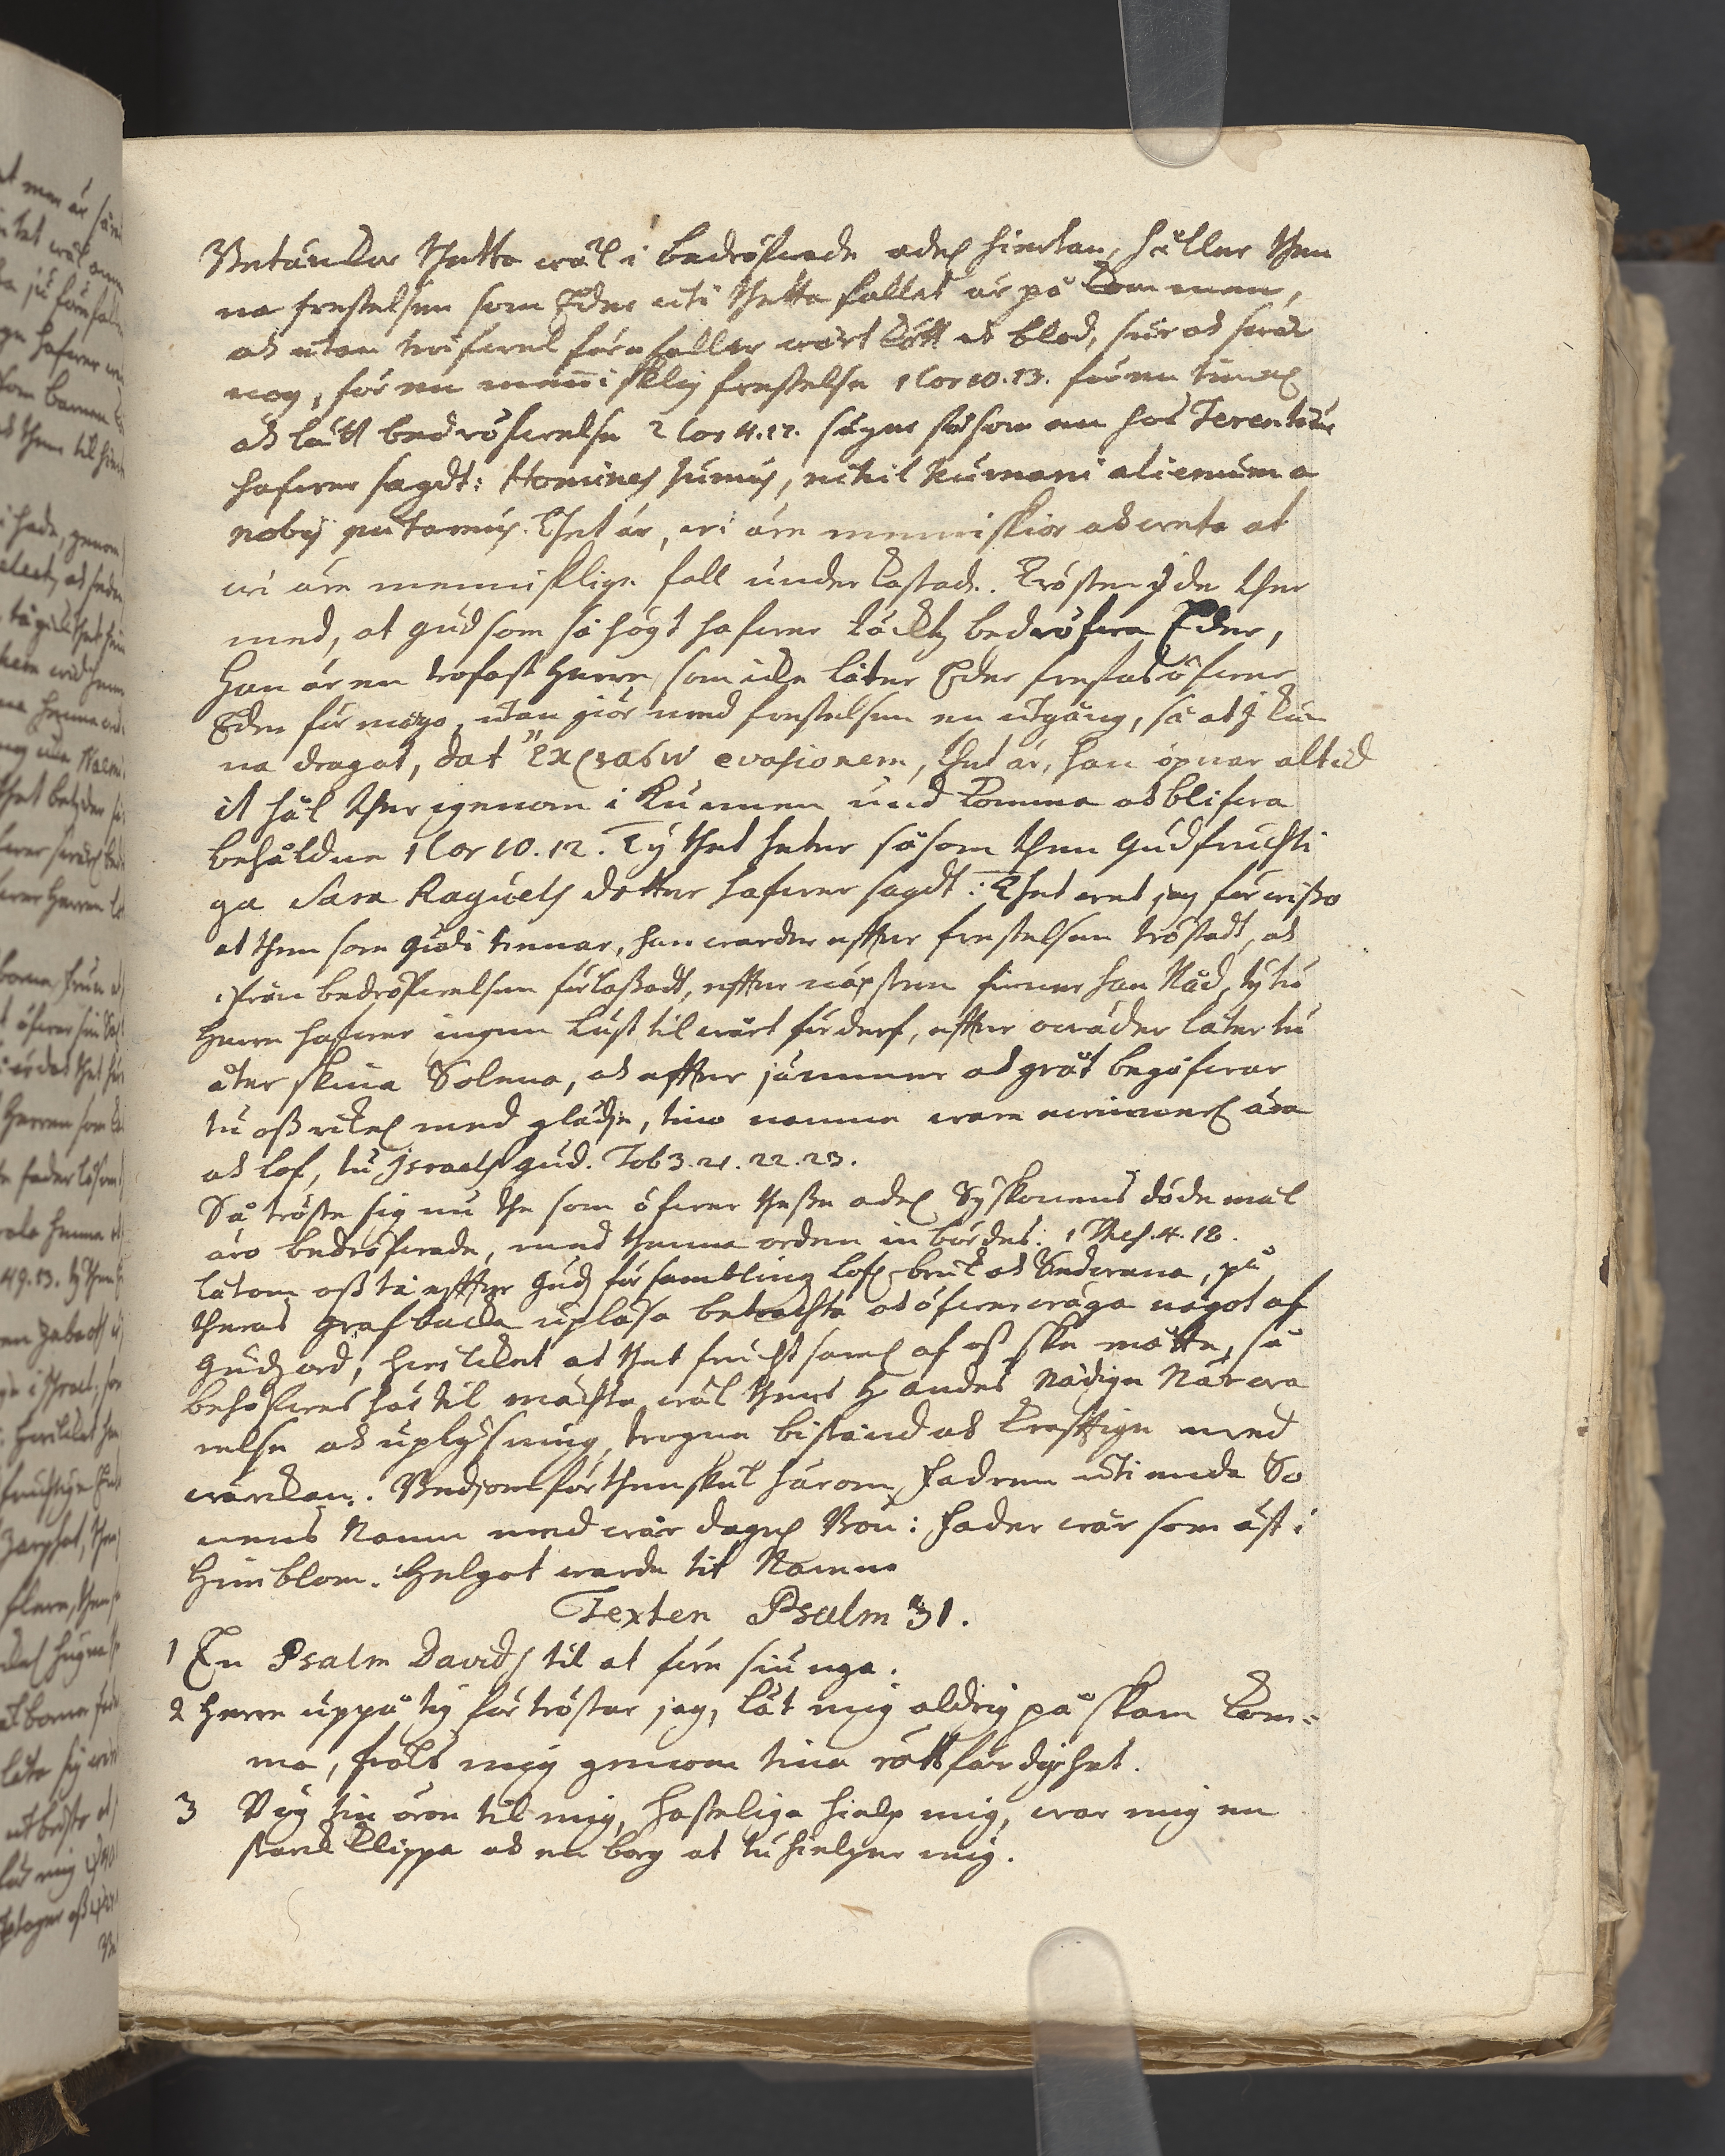 Betäncker thetta wäl i bedröfwade adel hiertan, håller then
na frestelsen som Eder uti thetta fallet är på kommen,
och utan twifwel förefaller wårt kött och blod, sur och swår
nog, för en menniskelig frestelse 1 Cor 10. 13. för en timel
och lätt bedröfwelse 2 Cor 4. 17. säger såsom en hos Terentius
hafwer sagdt: Homines sumus, nihil humani alienum a
nobis putamus. Thet är, wi äre menniskior och weta at
wi äre menniskliga fall underkastade. Trösten Eder ther
med, at Gud som så högt hafwer täcktz bedröfwa Eder,
Han är en trofast Herre, som icke låter Eder frestas öfwer
Eder förmågo, utan giör med frestelsen en utgång, så at J kun
na dragat, dat ἔκβασιν evasionem, thet är, han öpnar altid
it hål ther igenom i kunnen und komma och blifwa
behåldne 1 Cor 10. 12. Ty thet heter såsom then Gudfruchti
ga Sara Raguels dotter hafwer sagdt: Thet wet jag för wisso
at then som Gudi tienar, han warder effter frestelsen tröstadt, och
ifrån bedröfwelsen förlossadt, effter näpsten finner han Nåd, ty tu
Herre hafwer ingen lust til wårt förderf, effter owäder låter tu
åter skina Solena, och effter jämmer och gråt begåfwar
tu oss rikel med glädje, tino namne ware ewinnerl ära
och lof, tu Israels Gud. Tob 3. 21. 22. 23.
Så tröste sig nu the som öfwer thesse adel Syskonens döde mål
äro bedröfwade, med thenna orden inbördes. 1 Thes. 4. 18.
låtom oss tå effter Gudz församblingz lofl bruk och Sedwana, på
theras graf backa uplåsa betrachta och öfwerwäga något af
Gudz ord, hwilcket at thet fruchtsaml af oss ske måtte, så
behöfwes här til mächta wäl thens H andes Nådiga Närwa
relse och uplysning, trogna bistånd och krafftiga med
wärckan. Bedjom förthenskul härom Fadren uti enda So
nens Namn med wår dagel Bön: Fader wår som äst i
Himblom. Helgat warde tit Namn
Texten Psalm 31.
1 En Psalm Davids til at före siunga.
2 Herre uppå tig förtröstar jag, låt mig aldrig på skam kom-
ma, fräls mig genom tina rättfärdighet.
3 Bög tin öron til mig, hasteliga hielp mig, war mig en
starck klippa och en borg at tu hielper mig.